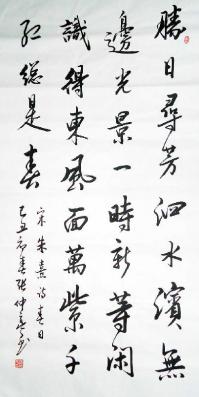 勝日尋芳泗水濱無
邊光景一時新等閑
識得東風面萬紫千
紅總是春
宋朱熹詩春日
己丑初春張仲亭書